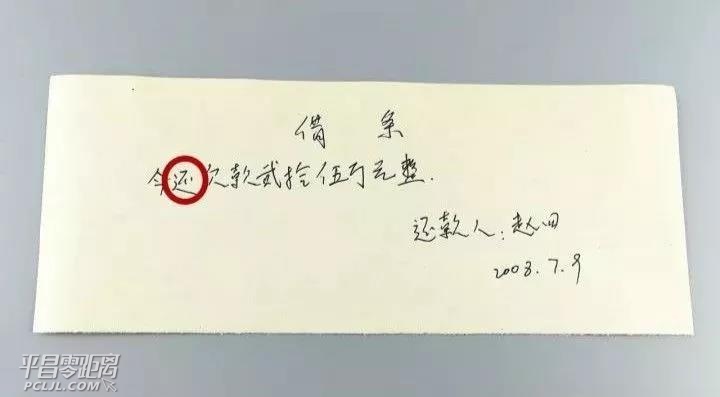 借 条
今还欠款贰拾伍万元整.
还款人:赵四
2008.7.9
平昌零距离
PCLJL.COM